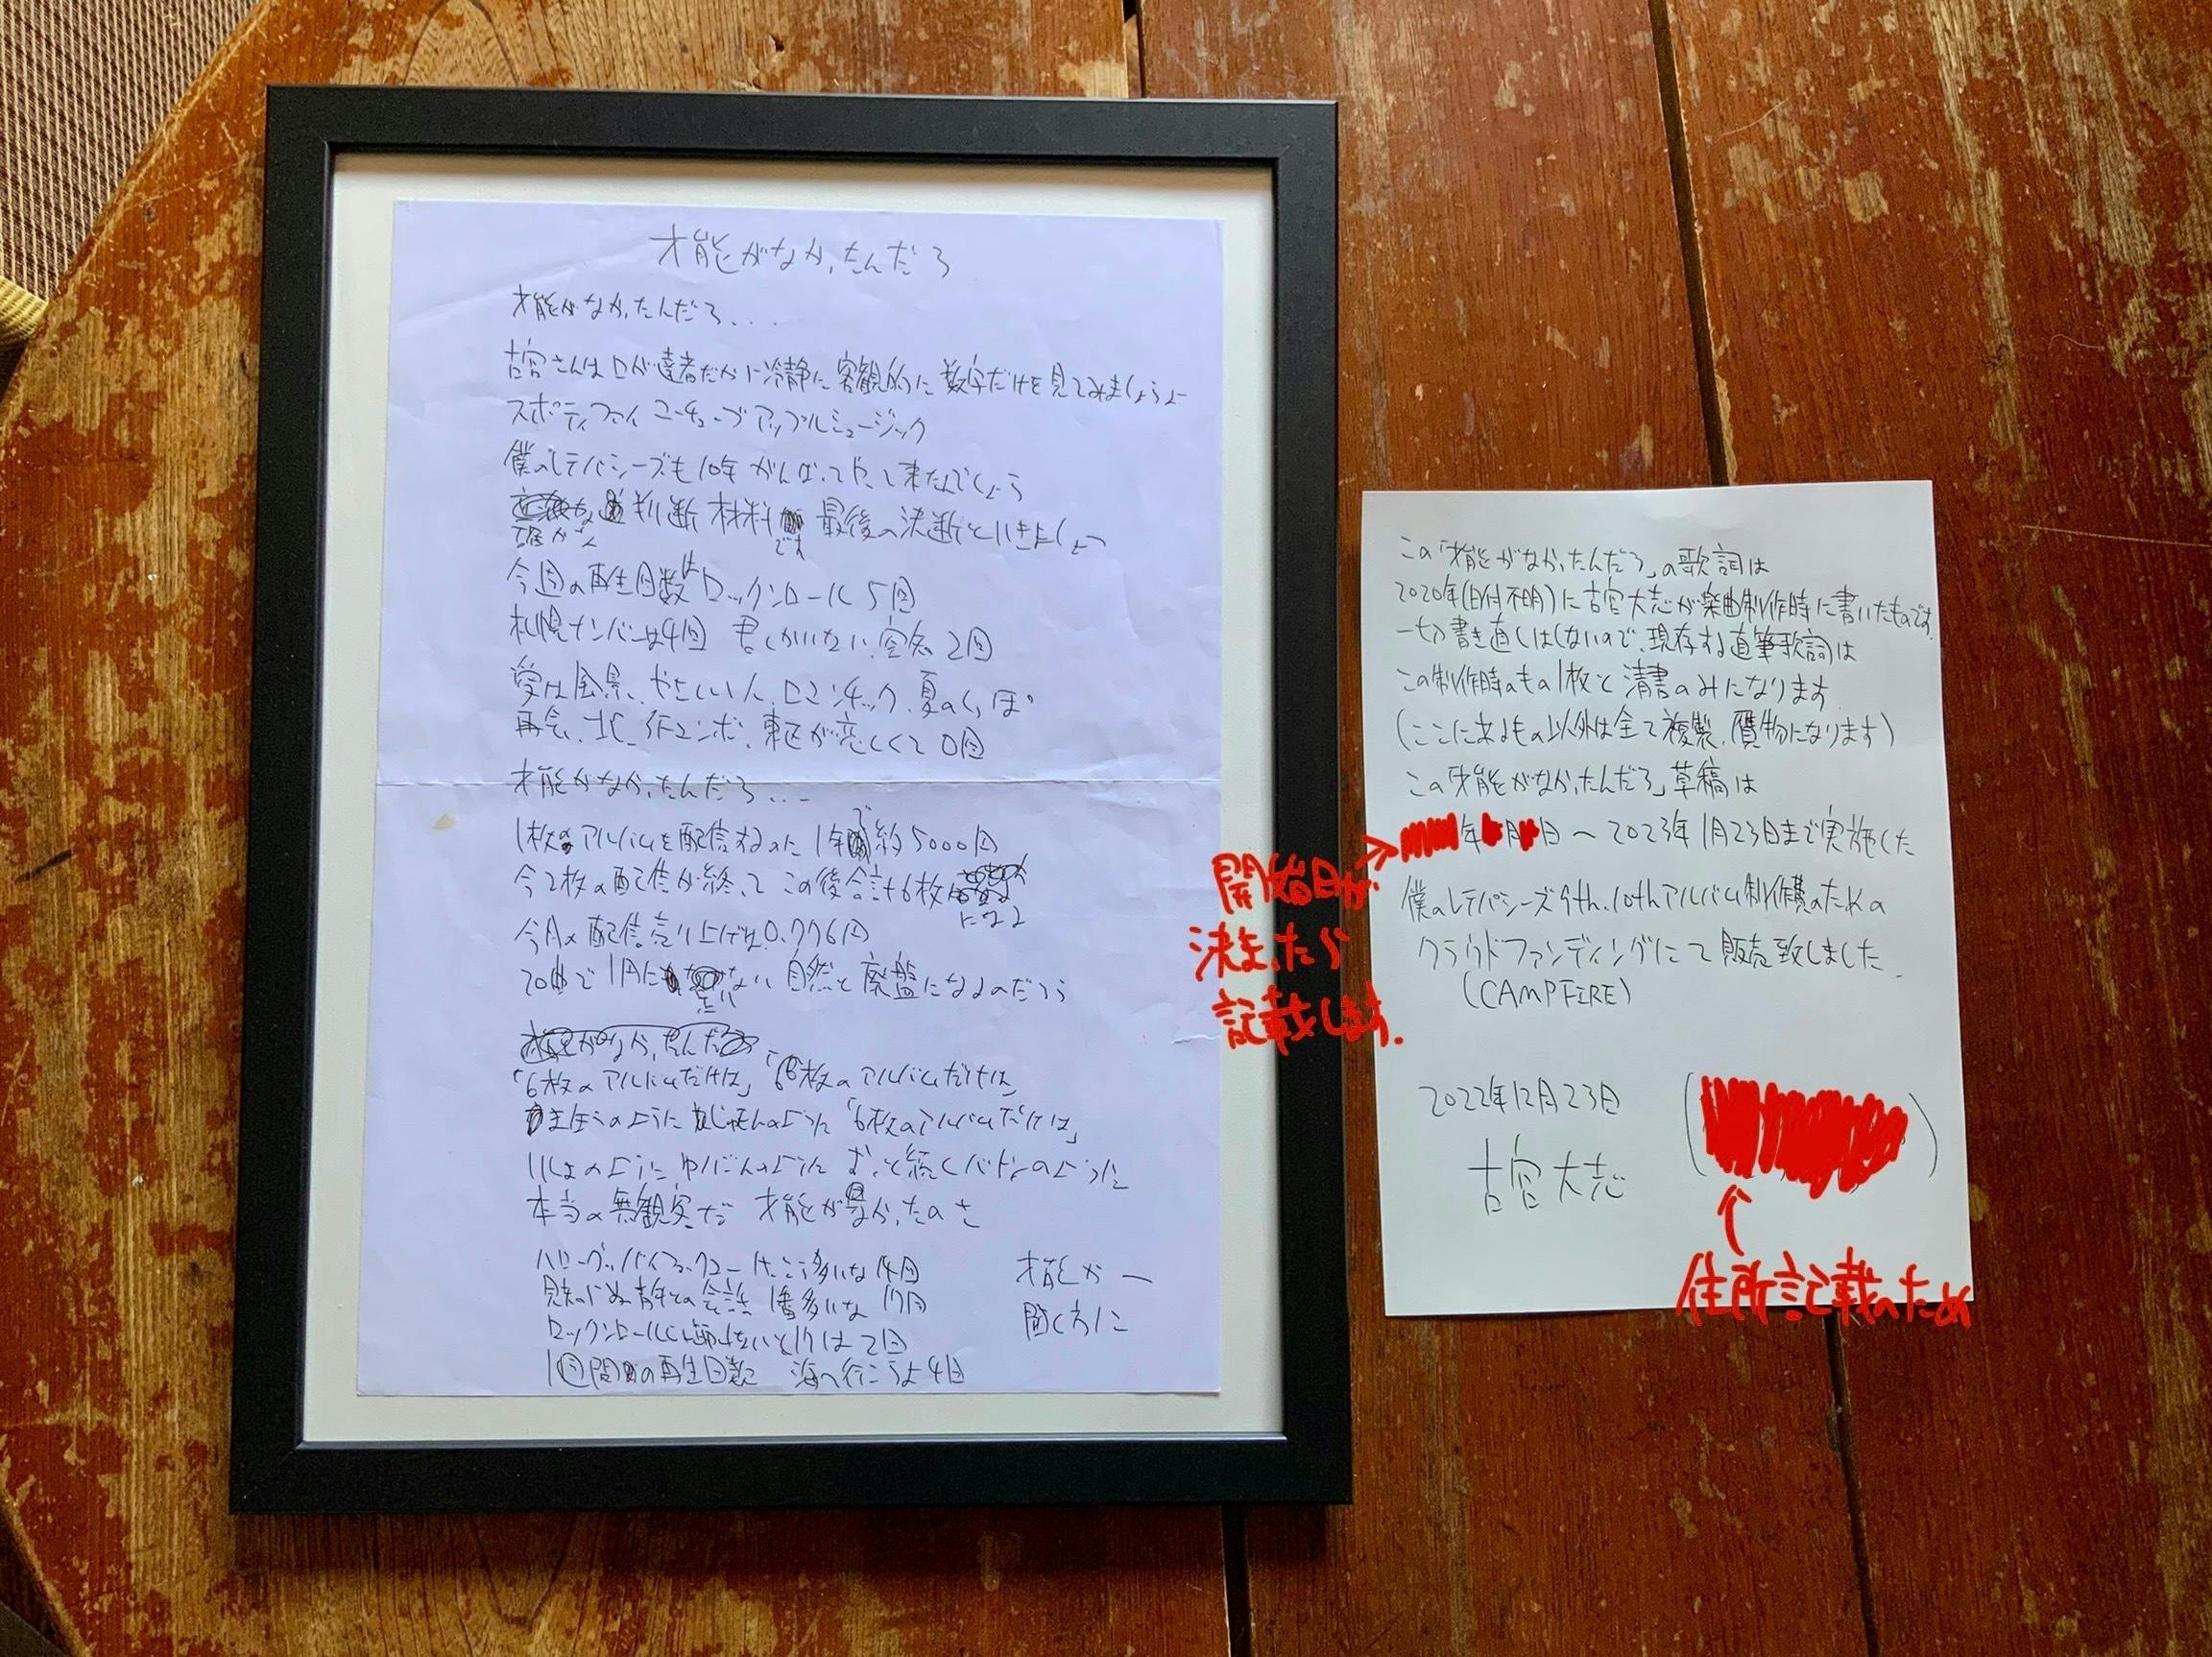 才能がなかったんだろ
才能がなかったんだろ...
古宮さんは口が達者だから冷静に客観的に数字だけを見てみましょうよ
スポティファイ ユーチューブ アップルミュージック
僕のレテパシーズも10年がんばってやって来たんでしょう
確かな判断材料です 最後の決断といきましょう
今週の再生回数は ロックンロール5回
札幌ナンバーは4回 君しかいない、空知2回
愛は風景、やさしい人、ロマンチック、夏のしっぽ
再会、北 東区が恋しくて0回
才能がなかったんだろ...
1枚のアルバムを配信するのに1年で約5000円
今2枚の配信が終って この後合計6枚になる
今月の配信売り上げは0.776円
20曲で1円に 自然と廃盤になるのだろう
才能がなかったんだろ
「6枚のアルバムだけは」「6枚のアルバムだけは」
のように のように「6枚のアルバムだけは」
のように ゆいごんのように ずっと続くバトンのように
本当の無観客だ 才能がなかったのさ
ハローグッバイファックユー けっこう多いな14回
見知らぬ青年との会話 1番多いな17回
ロックンロールじゃ 2回
1週間の再生回数 海へ行こうよ4回
才能が
聞く方に
この「才能がなかったんだろ」の歌詞は
2020年(日付不明)に古宮大志が楽曲制作時に書いたものです.
一切書き直しはしないので、現存する直筆歌詞は
この制作時のもの1枚と清書のみになります.
(ここにあるもの以外は全て複製、贋物になります)
この「才能がなかったんだろ」草稿は
年 月 日〜2023年1月23日まで実施した
僕のレテパシーズ9th、10thアルバム制作費のための
クラウドファンディングにて販売致しました.
(CAMPFIRE)
2022年12月23日
古宮大志
開始日が
決まったら
記載します.
住所記載のため